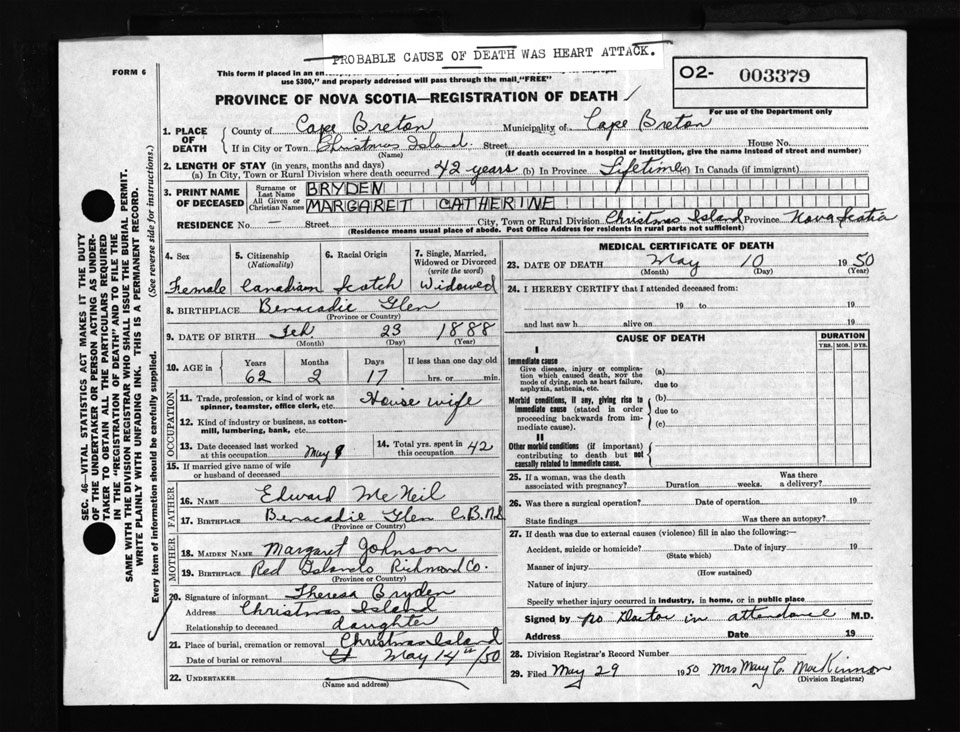 PROBABLE CAUSE OF DEATH WAS HEART ATTACK.
FORM 6
This form if placed in an
use $300," and properly addressed will pass through the mail, "FREE"
O2- 003379
PROVINCE OF NOVA SCOTIA—REGISTRATION OF DEATH
For use of the Department only
1. PLACE OF DEATH
County of Cape Breton Municipality of Cape Breton
If in City or Town Christmas Island. Street House No.
(Name) (If death occurred in a hospital or institution, give the name instead of street and number)
2. LENGTH OF STAY (in years, months and days)
(a) In City, Town or Rural Division where death occurred 42 years (b) In Province Lifetime (c) In Canada (if immigrant)
3. PRINT NAME OF DECEASED
Surname or Last Name BRYDEN
All Given or Christian Names MARGARET CATHERINE
RESIDENCE No. — Street City, Town or Rural Division Christmas Island Province Nova Scotia
(Residence means usual place of abode. Post Office Address for residents in rural parts not sufficient)
4. Sex
Female
5. Citizenship (Nationality)
Canadian
6. Racial Origin
Scotch
7. Single, Married, Widowed or Divorced (write the word)
Widowed
8. BIRTHPLACE Benacadie Glen
(Province or Country)
9. DATE OF BIRTH Feb 23 1888
(Month) (Day) (Year)
10. AGE in Years Months Days If less than one day old
62 2 17 hrs. or min.
OCCUPATION
11. Trade, profession, or kind of work as spinner, teamster, office clerk, etc. House wife
12. Kind of industry or business, as cotton-mill, lumbering, bank, etc.
13. Date deceased last worked at this occupation May 9
14. Total yrs. spent in this occupation 42
15. If married give name of wife or husband of deceased
FATHER
16. NAME Edward McNeil
17. BIRTHPLACE Benacadie Glen C.B.
(Province or Country)
MOTHER
18. MAIDEN NAME Margaret Johnson
19. BIRTHPLACE Red Islands Richmond Co.
(Province or Country)
20. Signature of informant Theresa Bryden
Address Christmas Island
Relationship to deceased daughter
21. Place of burial, cremation or removal Christmas Island
Date of burial or removal May 14th/50
22. UNDERTAKER
(Name and address)
MEDICAL CERTIFICATE OF DEATH
23. DATE OF DEATH May 10 1950
(Month) (Day) (Year)
24. I HEREBY CERTIFY that I attended deceased from:
19 to 19
and last saw h alive on 19
CAUSE OF DEATH
DURATION
YRS. MOS. DYS.
I
Immediate cause
Give disease, injury or complication which caused death, NOT the mode of dying, such as heart failure, asphyxia, asthenia, etc.
(a)
due to
Morbid conditions, if any, giving rise to immediate cause (stated in order proceeding backwards from immediate cause).
(b)
due to
(c)
II
Other morbid conditions (if important) contributing to death but not causally related to immediate cause.
25. If a woman, was the death associated with pregnancy? Duration weeks. Was there a delivery?
26. Was there a surgical operation? Date of operation 19
State findings Was there an autopsy?
27. If death was due to external causes (violence) fill in also the following:—
Accident, suicide or homicide? Date of injury 19
(State which)
Manner of injury
(How sustained)
Nature of injury
Specify whether injury occurred in industry, in home, or in public place
Signed by no Doctor in attendance M.D.
Address Date 19
28. Division Registrar's Record Number
29. Filed May 29 1950 Mrs Mary C. MacKinnon
(Division Registrar)
SEC. 46—VITAL STATISTICS ACT MAKES IT THE DUTY
OF THE UNDERTAKER OR PERSON ACTING AS UNDER-
TAKER TO OBTAIN ALL THE PARTICULARS REQUIRED
IN THE "REGISTRATION OF DEATH" AND TO FILE THE
SAME WITH THE DIVISION REGISTRAR WHO SHALL ISSUE THE BURIAL PERMIT.
WRITE PLAINLY WITH UNFADING INK. THIS IS A PERMANENT RECORD.
Every item of information should be carefully supplied. (See reverse side for instructions.)